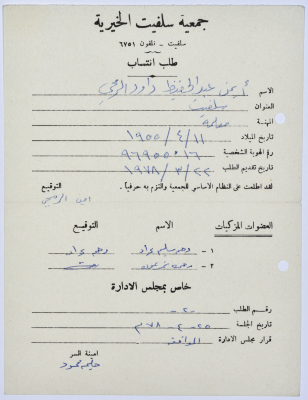 جمعية سلفيت الخيرية
سلفيت - تلفون ٦٧٥١
طلب انتساب
الاسم أيمن عبد الحفيظ داود الزعبي
العنوان سلفيت
المهنة معلمة
تاريخ الميلاد ١٩٥٥/٤/١١
رقم الهوية الشخصية ٩٦٩٥٥٠١٦
تاريخ تقديم الطلب ١٩٧٨/٣/٢٢
لقد اطلعت على النظام الاساسي للجمعية والتزم به حرفياً .
التوقيع
العضوات المزكيات الاسم التوقيع
١ -
٢ -
خاص بمجلس الادارة
رقم الطلب -٢-
تاريخ الجلسة ٢٥-٣-٩٧٨
قرار مجلس الادارة الموافقة
امينة السر
حليمه محمود